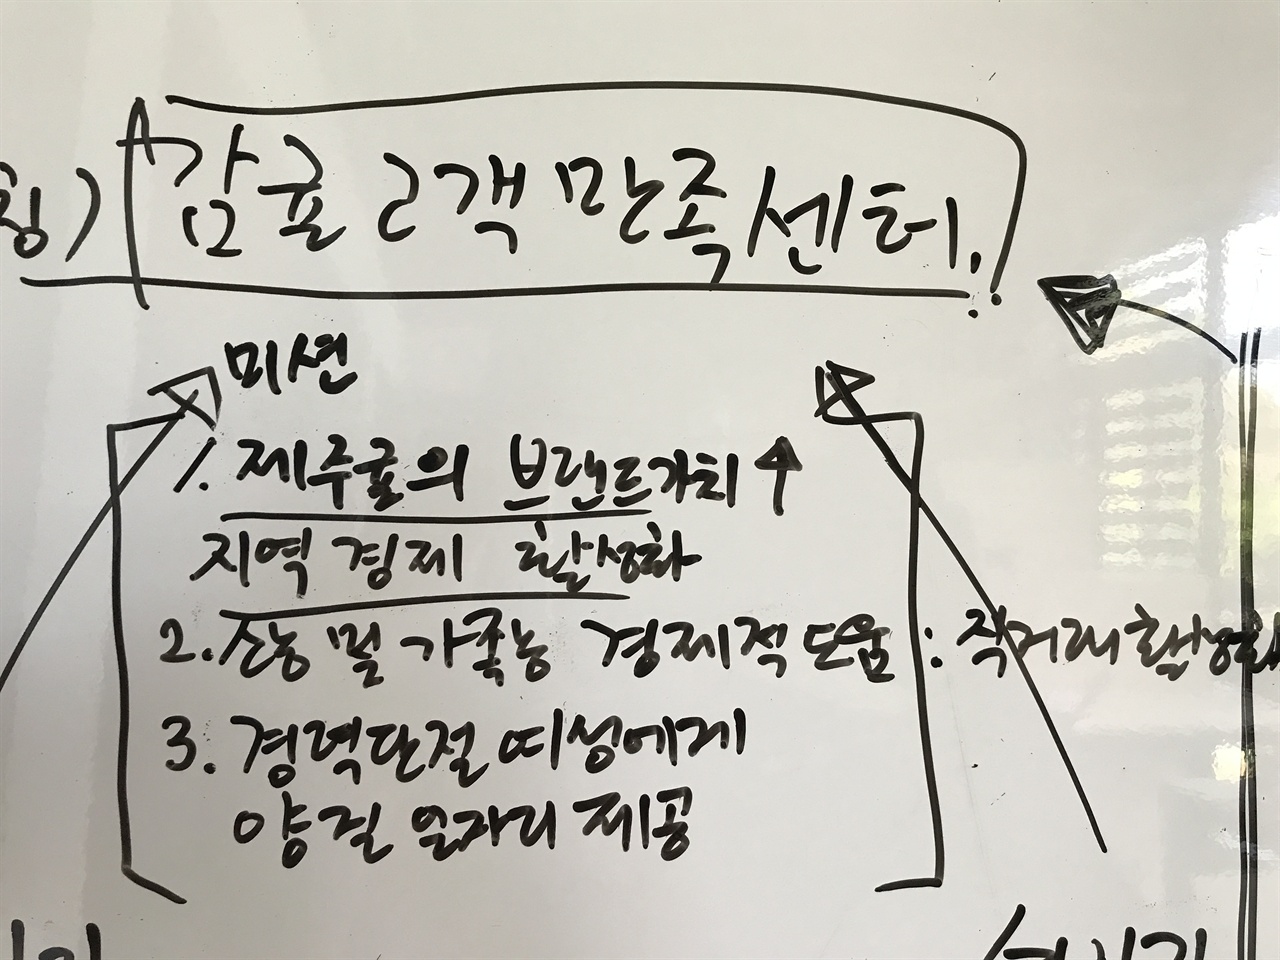 칭) 감귤 고객 만족센터.
미션
1. 제주귤의 브랜드가치 ↑
지역 경제 활성화
2. 소농 및 가족농 경제적 도움 : 직거래 활성화
3. 경력단절 여성에게
양질 일자리 제공